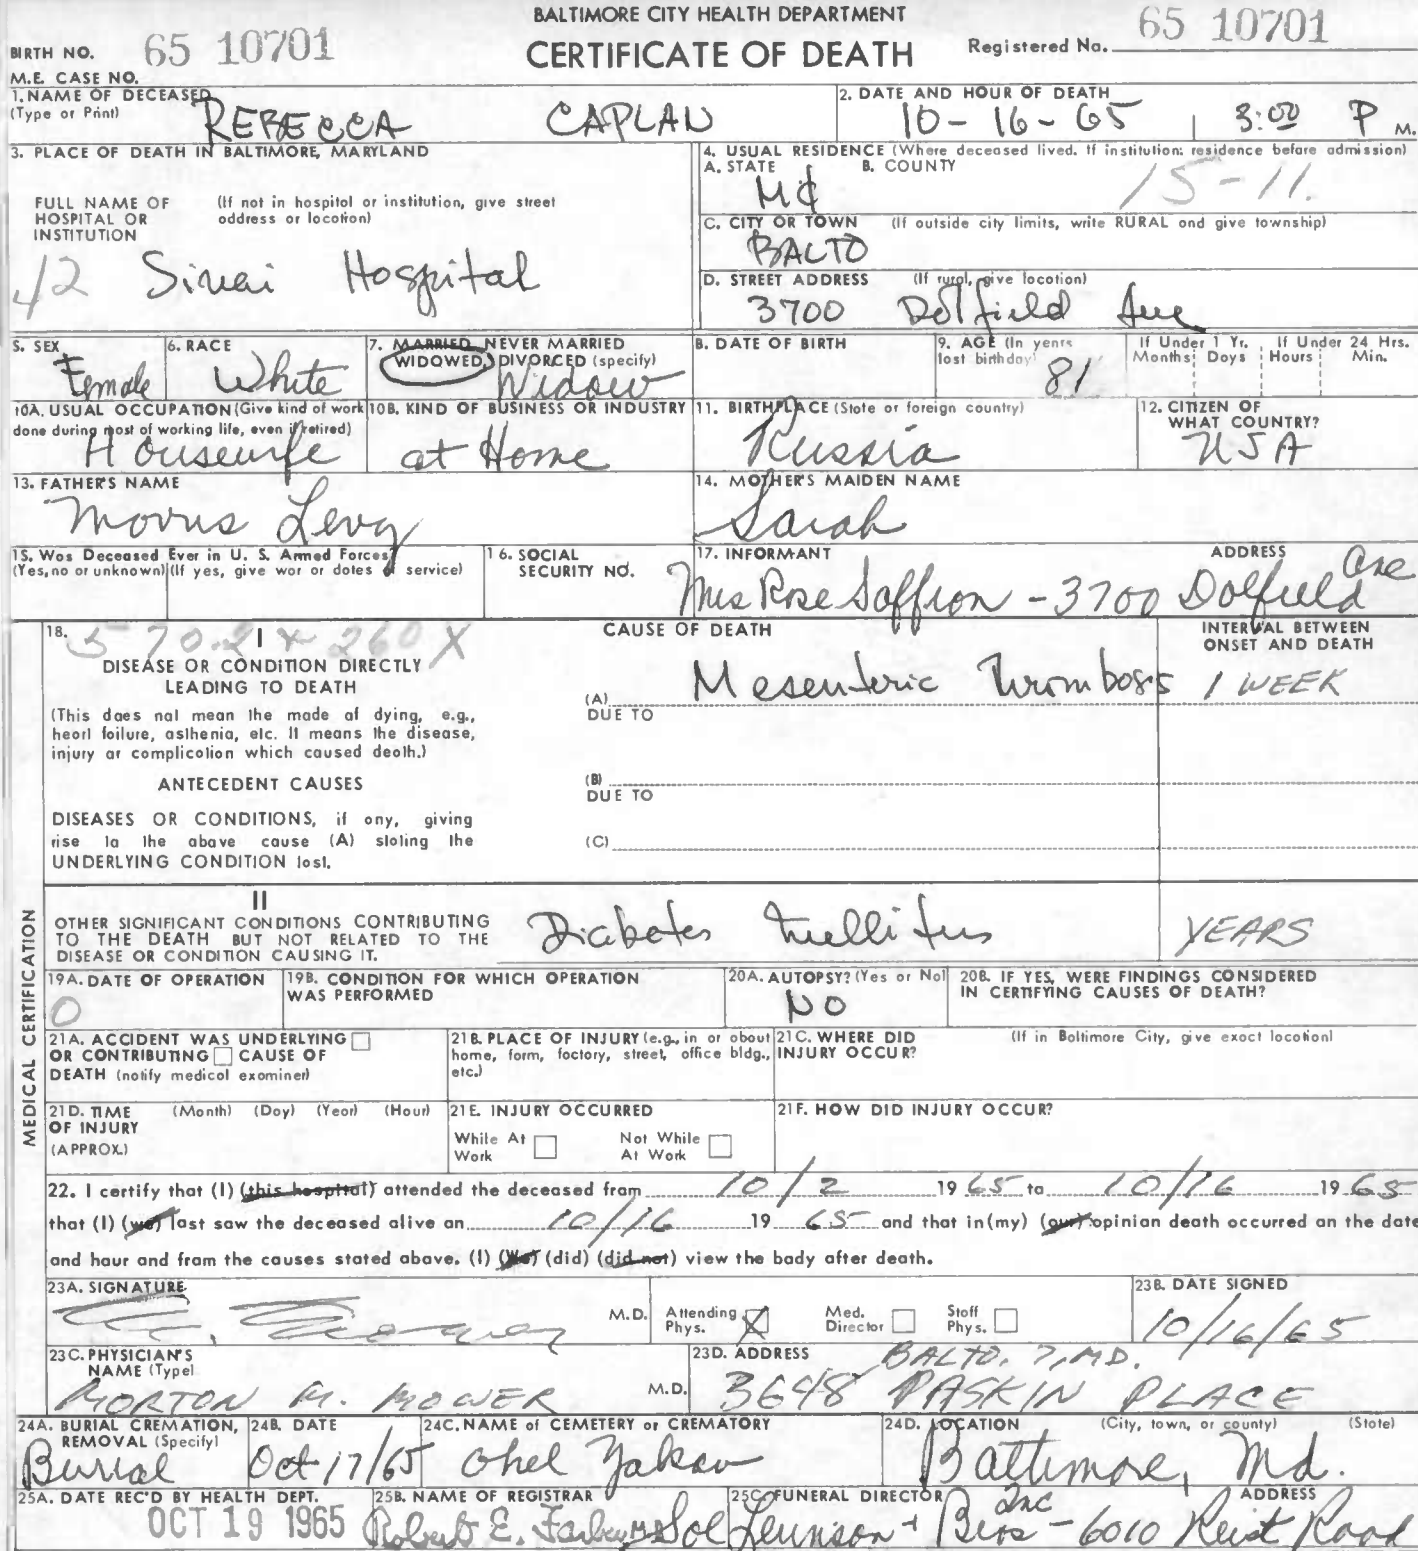 BALTIMORE CITY HEALTH DEPARTMENT
CERTIFICATE OF DEATH
BIRTH NO. 65 10701
Registered No. 65 10701
M.E. CASE NO.
1. NAME OF DECEASED (Type or Print) REBECCA CAPLAN
2. DATE AND HOUR OF DEATH 10-16-65 3:00 P M.
3. PLACE OF DEATH IN BALTIMORE, MARYLAND
FULL NAME OF HOSPITAL OR INSTITUTION
(If not in hospital or institution, give street address or location)
42 Sinai Hospital
4. USUAL RESIDENCE (Where deceased lived. If institution: residence before admission)
A. STATE Md
B. COUNTY 15-11.
C. CITY OR TOWN (If outside city limits, write RURAL and give township)
BALTO
D. STREET ADDRESS (If rural, give location)
3700 Dolfield Ave
5. SEX Female
6. RACE White
7. MARRIED, NEVER MARRIED WIDOWED, DIVORCED (specify) Widow
8. DATE OF BIRTH
9. AGE (In years last birthday) 81
If Under 1 Yr. Months Days
If Under 24 Hrs. Hours Min.
10A. USUAL OCCUPATION (Give kind of work done during most of working life, even if retired) Housewife
10B. KIND OF BUSINESS OR INDUSTRY at Home
11. BIRTHPLACE (State or foreign country) Russia
12. CITIZEN OF WHAT COUNTRY? USA
13. FATHER'S NAME Morris Levy
14. MOTHER'S MAIDEN NAME Sarah
15. Was Deceased Ever in U. S. Armed Forces?
(Yes, no or unknown) (If yes, give war or dates of service)
16. SOCIAL SECURITY NO.
17. INFORMANT ADDRESS
Mrs Rose Saffron - 3700 Dolfield Ave
18. 570.2 + 260X
I
DISEASE OR CONDITION DIRECTLY
LEADING TO DEATH
(This does not mean the mode of dying, e.g.,
heart failure, asthenia, etc. It means the disease,
injury or complication which caused death.)
ANTECEDENT CAUSES
DISEASES OR CONDITIONS, if any, giving
rise to the above cause (A) stating the
UNDERLYING CONDITION last.
CAUSE OF DEATH
INTERVAL BETWEEN ONSET AND DEATH
(A) Mesenteric Thrombosis 1 WEEK
DUE TO
(B)
DUE TO
(C)
MEDICAL CERTIFICATION
II
OTHER SIGNIFICANT CONDITIONS CONTRIBUTING
TO THE DEATH BUT NOT RELATED TO THE
DISEASE OR CONDITION CAUSING IT.
Diabetes Mellitus YEARS
19A. DATE OF OPERATION 0
19B. CONDITION FOR WHICH OPERATION WAS PERFORMED
20A. AUTOPSY? (Yes or No) NO
20B. IF YES, WERE FINDINGS CONSIDERED IN CERTIFYING CAUSES OF DEATH?
21A. ACCIDENT WAS UNDERLYING
OR CONTRIBUTING CAUSE OF
DEATH (notify medical examiner)
21B. PLACE OF INJURY (e.g., in or about
home, farm, factory, street, office bldg.,
etc.)
21C. WHERE DID INJURY OCCUR?
(If in Baltimore City, give exact location)
21D. TIME OF INJURY (APPROX.) (Month) (Day) (Year) (Hour)
21E. INJURY OCCURRED
While At Work Not While At Work
21F. HOW DID INJURY OCCUR?
22. I certify that (I) (this hospital) attended the deceased from 10/2 19 65 to 10/16 19 65
that (I) (we) last saw the deceased alive on 10/16 19 65 and that in (my) (our) opinion death occurred on the date
and hour and from the causes stated above. (I) (We) (did) (did not) view the body after death.
23A. SIGNATURE M.D.
Attending Phys. X Med. Director Staff Phys.
23B. DATE SIGNED 10/16/65
23C. PHYSICIAN'S NAME (Type) MORTON M. MOWER M.D.
23D. ADDRESS BALTO. 7, MD.
3648 PASKIN PLACE
24A. BURIAL CREMATION, REMOVAL (Specify) Burial
24B. DATE Oct 17/65
24C. NAME of CEMETERY or CREMATORY Ohel Yakov
24D. LOCATION (City, town, or county) (State)
Baltimore, Md.
25A. DATE REC'D BY HEALTH DEPT. OCT 19 1965
25B. NAME OF REGISTRAR Robert E. Farber M.D.
25C. FUNERAL DIRECTOR ADDRESS
Sol Levinson + Bros Inc - 6010 Reist Road